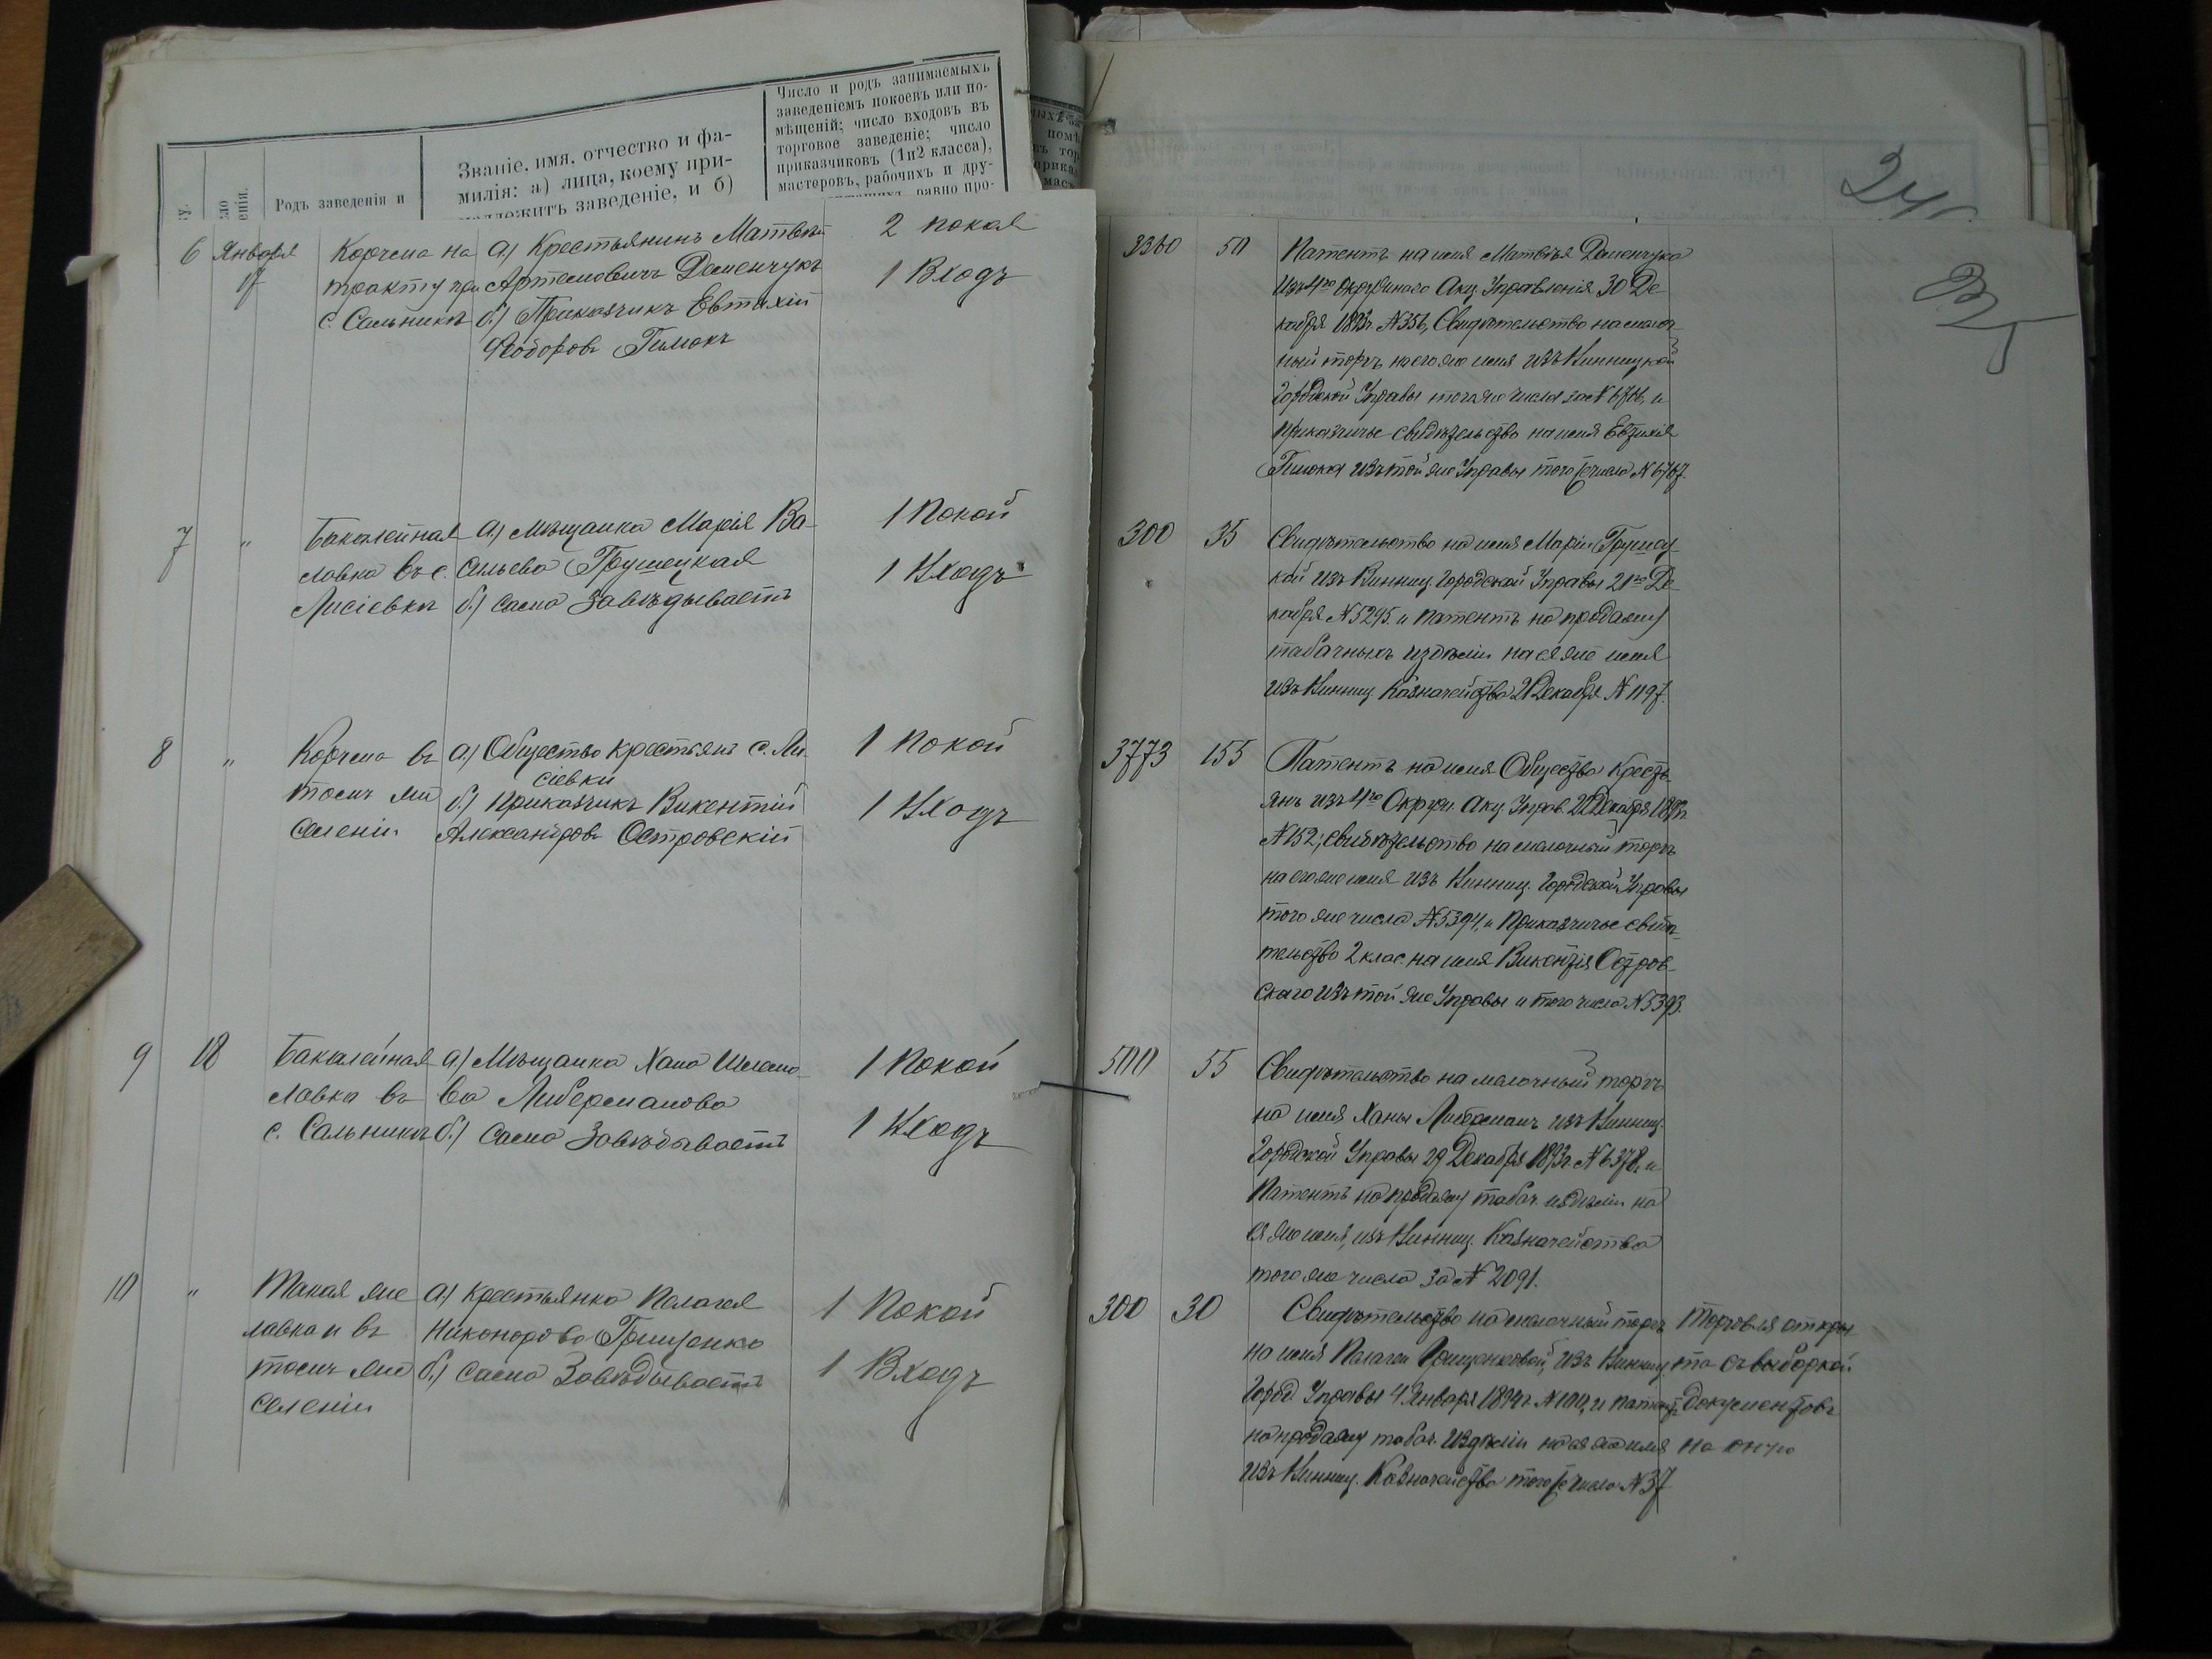 Родъ заведенія и
Званіе, имя, отчество и фа-
милія: а) лица, коему при-
надлежитъ заведеніе, и б)
Число и родъ занимаемыхъ
заведеніемъ покоевъ или по-
мѣщеній; число входовъ въ
торговое заведеніе; число
приказчиковъ (1 и 2 класса),
мастеровъ, рабочихъ и дру-
равно про-
6 Января
17
Корчма на
тракту при
с. Сальникѣ
а) Крестьянинъ Матвѣй
Артемовичъ Деменчукъ
б) Приказчикъ Евтихій
Ѳеодоровъ
2 покоя
1 Входъ
7 "
Бакалейная
лавка въ с.
Лисіевкѣ
а) Мѣщанка Марія Ва-
сильева Грушецкая
б) сама Завѣдываетъ
1 Покой
1 Входъ
8 "
Корчма въ
томъ же
селеніи
а) Общество крестьянъ с. Ли-
сіевки
б) Приказчикъ Викентій
Александровъ Островскій
1 Покой
1 Входъ
9 18
Бакалейная
лавка въ
с. Сальникѣ
а) Мѣщанка Хана Шлемо-
ва Либерманова
б) Сама Завѣдываетъ
1 Покой
1 Входъ
10 "
Такая же
лавка и въ
томъ же
селеніи
а) Крестьянка Пелагея
Никонорова Грищенко
б) Сама Завѣдываетъ
1 Покой
1 Входъ
3360 50
Патентъ на имя Матвѣя Деменчука
изъ 4го Окружнаго Акц. Управленія 30 Де-
кабря 1893г. №356, Свидѣтельство на мелоч-
ный торгъ на его же имя изъ Винницкой
Городской Управы того же числа за №6766, и
приказчичье свидѣтельство на имя Евтихія
изъ той же Управы того же числа №6767.
300 35
Свидѣтельство на имя Маріи Грушец-
кой изъ Винниц. Городской Управы 21го Де-
кабря №5295. и патентъ на продажу
табачныхъ издѣлій на ея же имя
изъ Винниц. Казначейства 21 Декабря №1197.
3773 155
Патентъ на имя Общества Кресть-
янъ изъ 4го Окружн. Акц. Управ. Декабря 1893г.
№152; свидѣтельство на мелочный торгъ
на его же имя изъ Винниц. Городской Управы
того же числа №5394, и Приказчичье свидѣ-
тельство 2 клас. на имя Викентія Остров-
скаго изъ той же Управы и того числа №5393.
500 55
Свидѣтельство на мелочный торгъ
на имя Ханы Либерманъ изъ Винниц.
Городской Управы 29 Декабря 1893г. №6378, и
Патентъ на продажу табач. издѣлій на
ея же имя, изъ Винниц. Казначейства
того же числа за № 2091.
300 30
Свидѣтельство на мелочный торгъ
на имя Пелагеи Грищенковой, изъ Винниц.
Город. Управы 4 Января 1894г. №100, и патентъ
на продажу табач. издѣлій на ея же имя
изъ Винниц. Казначейства того же числа №37
Торговля откры-
та съ выборкой
документовъ
на оную